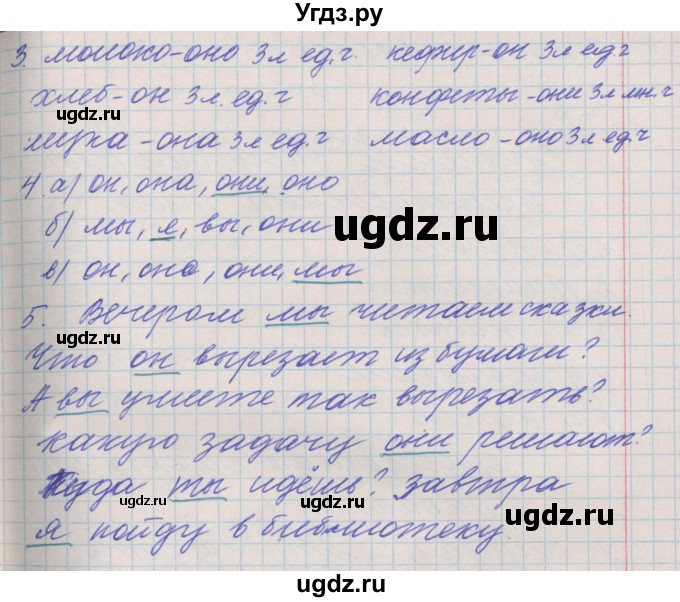 Угдз.ру
3. молоко-оно 3л ед.ч. кефир-он 3л ед ч
хлеб-он 3л. ед. ч конфеты-они 3л мн. ч
мука-она 3л ед. ч масло-оно 3л ед. ч
4. а) он, она, они, оно
б) мы, я, вы, они
ugdz.ru
ugdz.ru
в) он, она, они, мы
5. Вечером мы читаем сказки.
ugdz.ru
ugdz.ru
Что он вырезает из бумаги?
А вы умеете так вырезать?
ugdz.ru
какую задачу они решают?
Куда ты идёшь? завтра
ugdz.ru
ugdz.ru
я пойду в библиотеку.
ugdz.ru